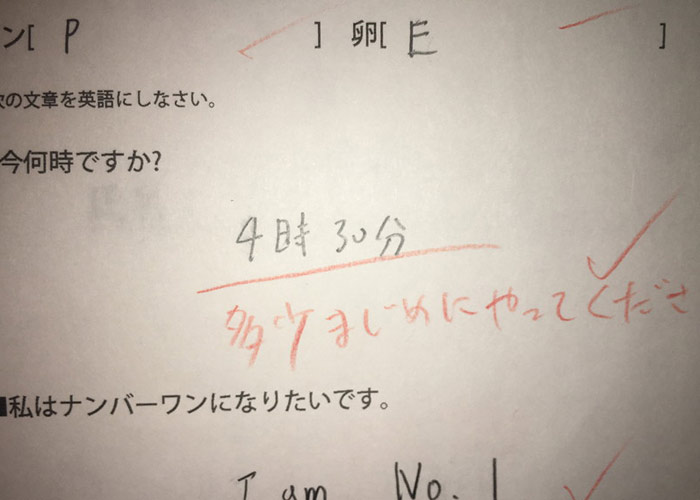 ン[ P ] 卵[ E ]
次の文章を英語にしなさい。
今何時ですか?
4時30分
多少まじめにやってくださ
■私はナンバーワンになりたいです。
I am No. 1